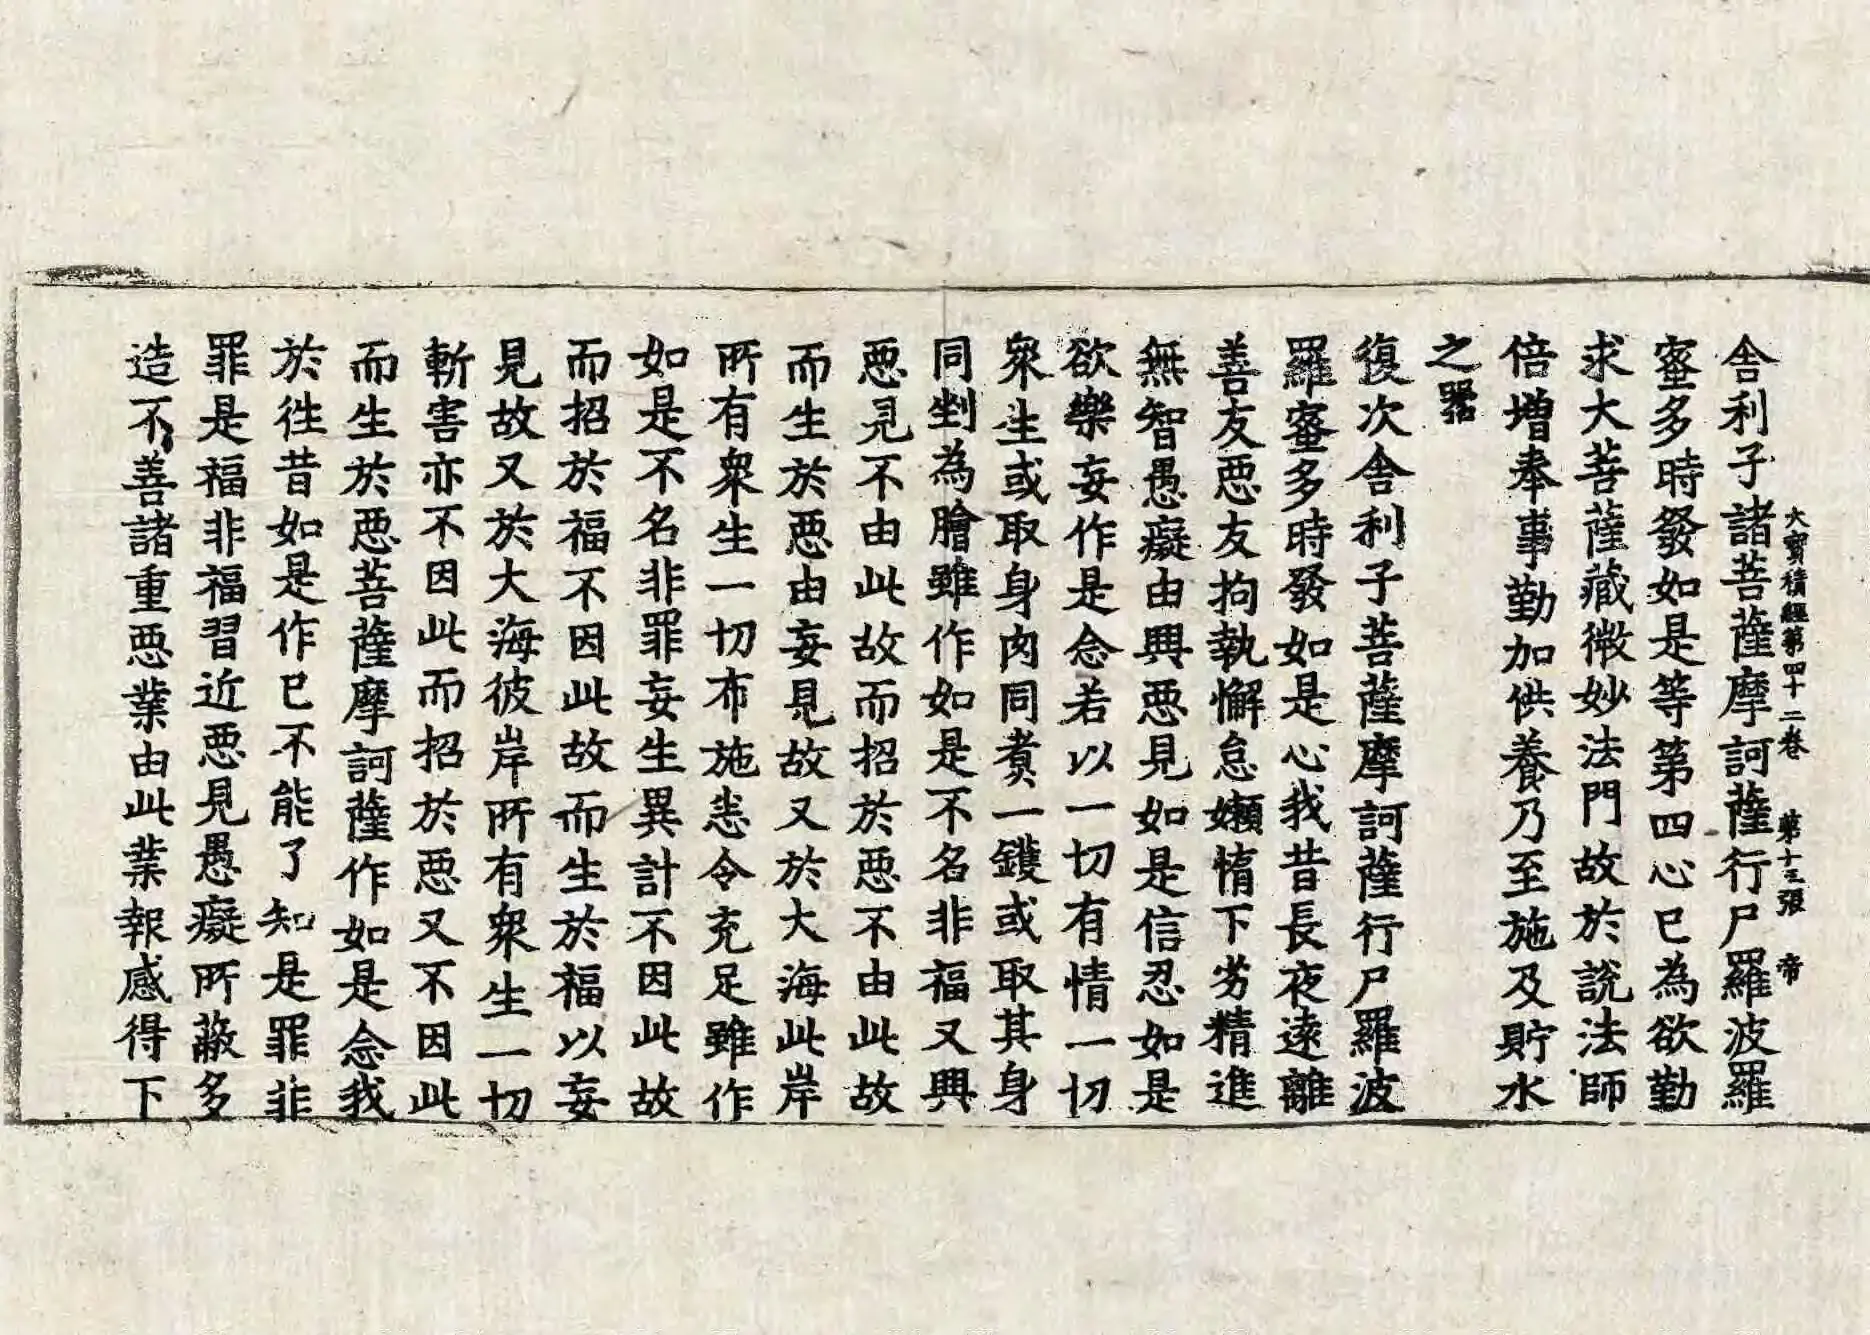 大寳積經第四十二卷 第十三張 帝
舍利子諸菩薩摩訶薩行尸羅波羅
蜜多時發如是等第四心已為欲勤
求大菩薩藏微妙法門故於說法師
倍增奉事勤加供養乃至施及貯水
之器
復次舍利子菩薩摩訶薩行尸羅波
羅蜜多時發如是心我昔長夜遠離
善友惡友拘執懈怠嬾惰下劣精進
無智愚癡由興惡見如是信忍如是
欲樂妄作是念若以一切有情一切
衆生或取身肉同煑一鑊或取其身
同剉為膾雖作如是不名非福又興
惡見不由此故而招於惡不由此故
而生於惡由妄見故又於大海此岸
所有衆生一切布施悉令充足雖作
如是不名非罪妄生異計不因此故
而招於福不因此故而生於福以妄
見故又於大海彼岸所有衆生一切
斬害亦不因此而招於惡又不因此
而生於惡菩薩摩訶薩作如是念我
於往昔如是作已不能了知是罪非
罪是福非福習近惡見愚癡所蔽多
造不善諸重惡業由此業報感得下